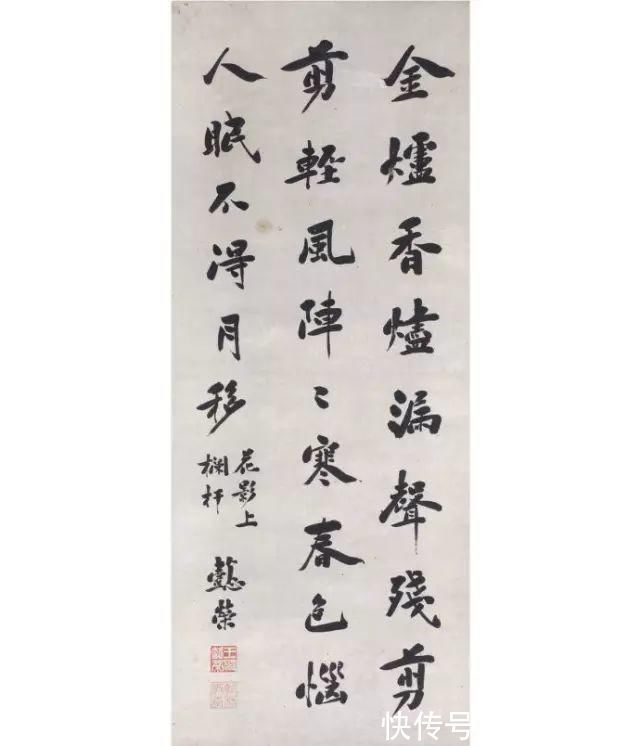 金爐香燼漏聲殘剪
剪輕風陣〻寒春色惱
人眠不得月移
花影上
欄杆
懿榮
快传号